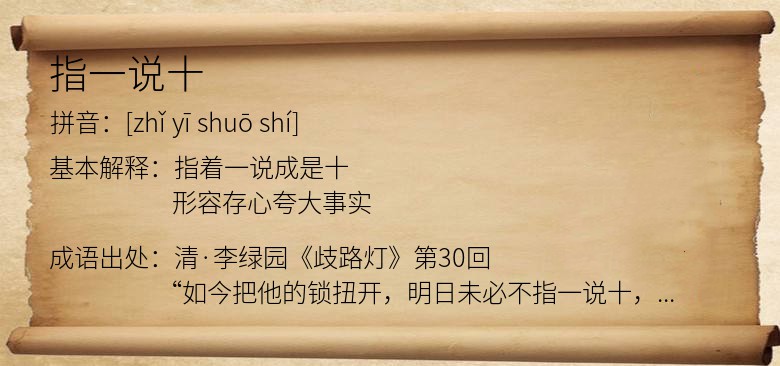 指一说十
拼音：[zhǐ yī shuō shí]
基本解释：指着一说成是十
形容存心夸大事实
成语出处：清·李绿园《歧路灯》第30回
“如今把他的锁扭开，明日未必不指一说十，...